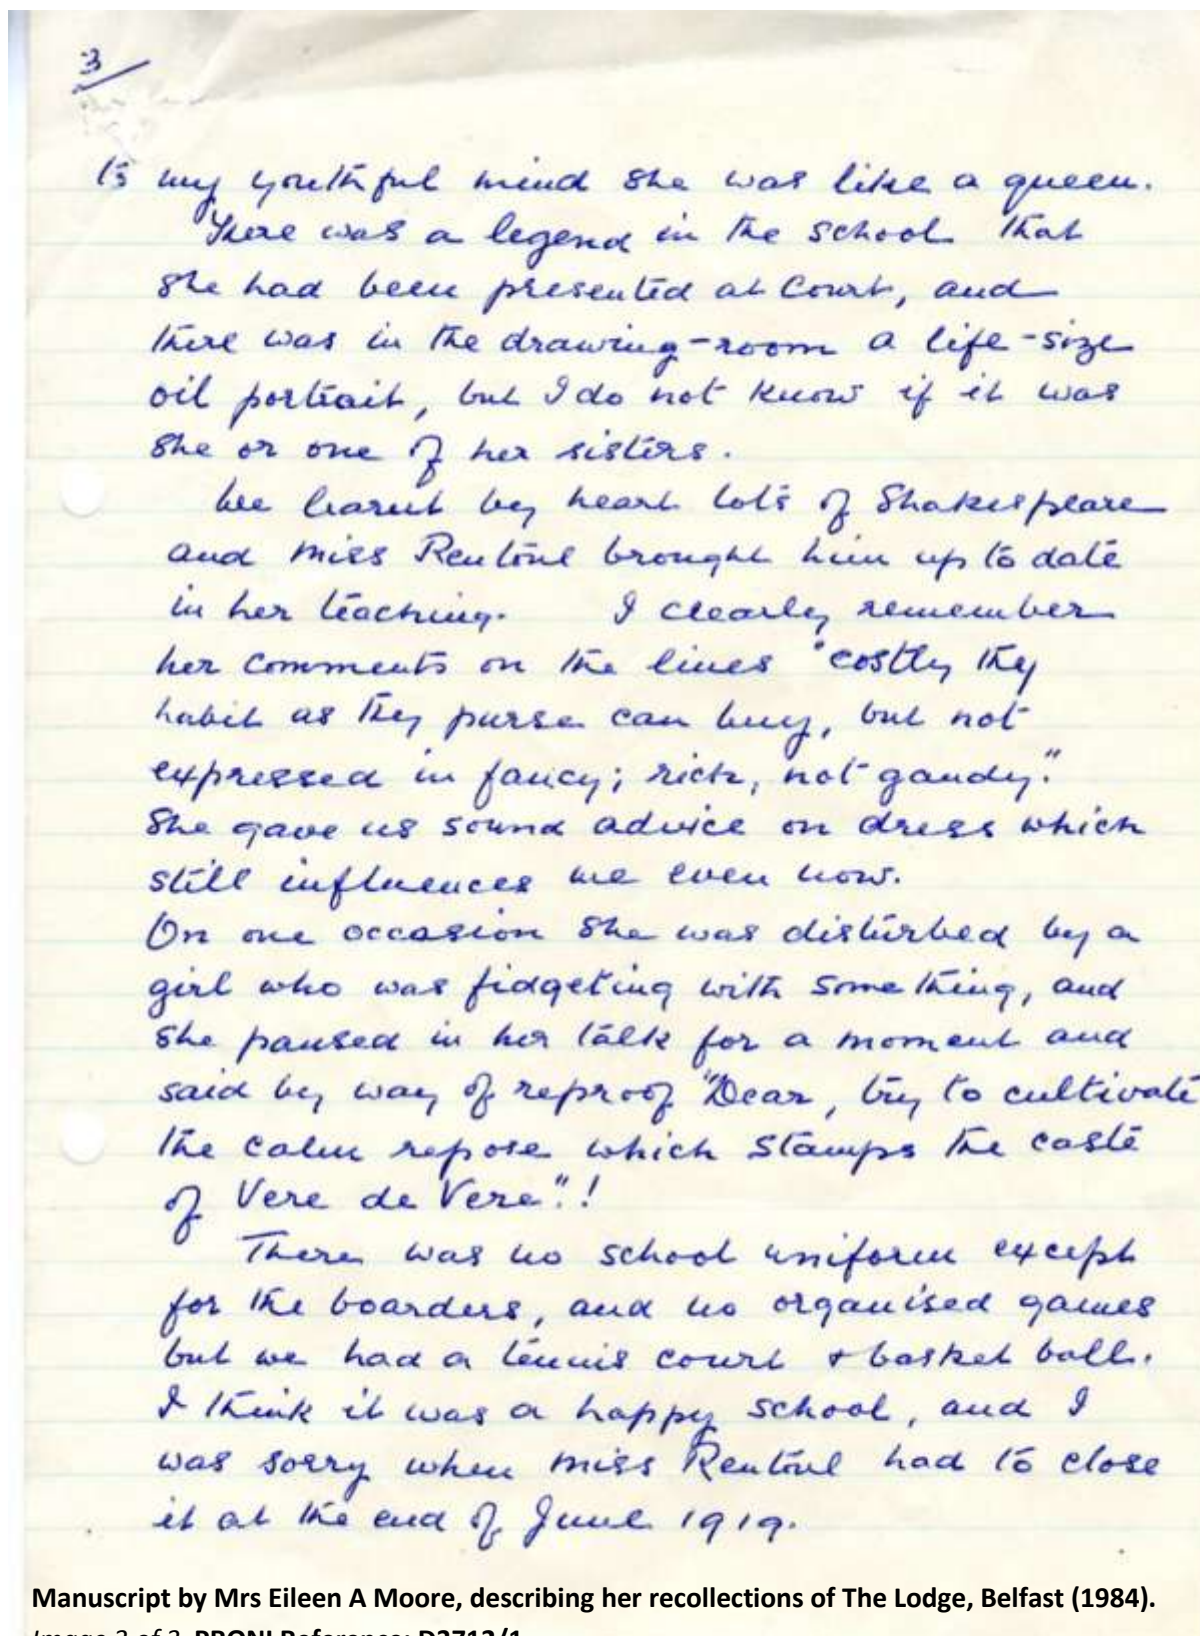 3
to my youthful mind she was like a queen.
There was a legend in the school that
she had been presented at Court, and
there was in the drawing-room a life-size
oil portrait, but I do not know if it was
she or one of her sisters.
We learnt by heart lots of Shakespeare
and Miss Rentoul brought him up to date
in her teaching. I clearly remember
her comments on the lines "costly thy
habit as thy purse can buy, but not
expressed in fancy; rich, not gaudy."
She gave us sound advice on dress which
still influences me even now.
On one occasion she was disturbed by a
girl who was fidgeting with something, and
she paused in her talk for a moment and
said by way of reproof "Dear, try to cultivate
the calm repose which stamps the caste
of Vere de Vere"!
There was no school uniform except
for the boarders, and no organised games
but we had a tennis court + basket ball.
I think it was a happy school, and I
was sorry when Miss Rentoul had to close
it at the end of June 1919.
Manuscript by Mrs Eileen A Moore, describing her recollections of The Lodge, Belfast (1984).